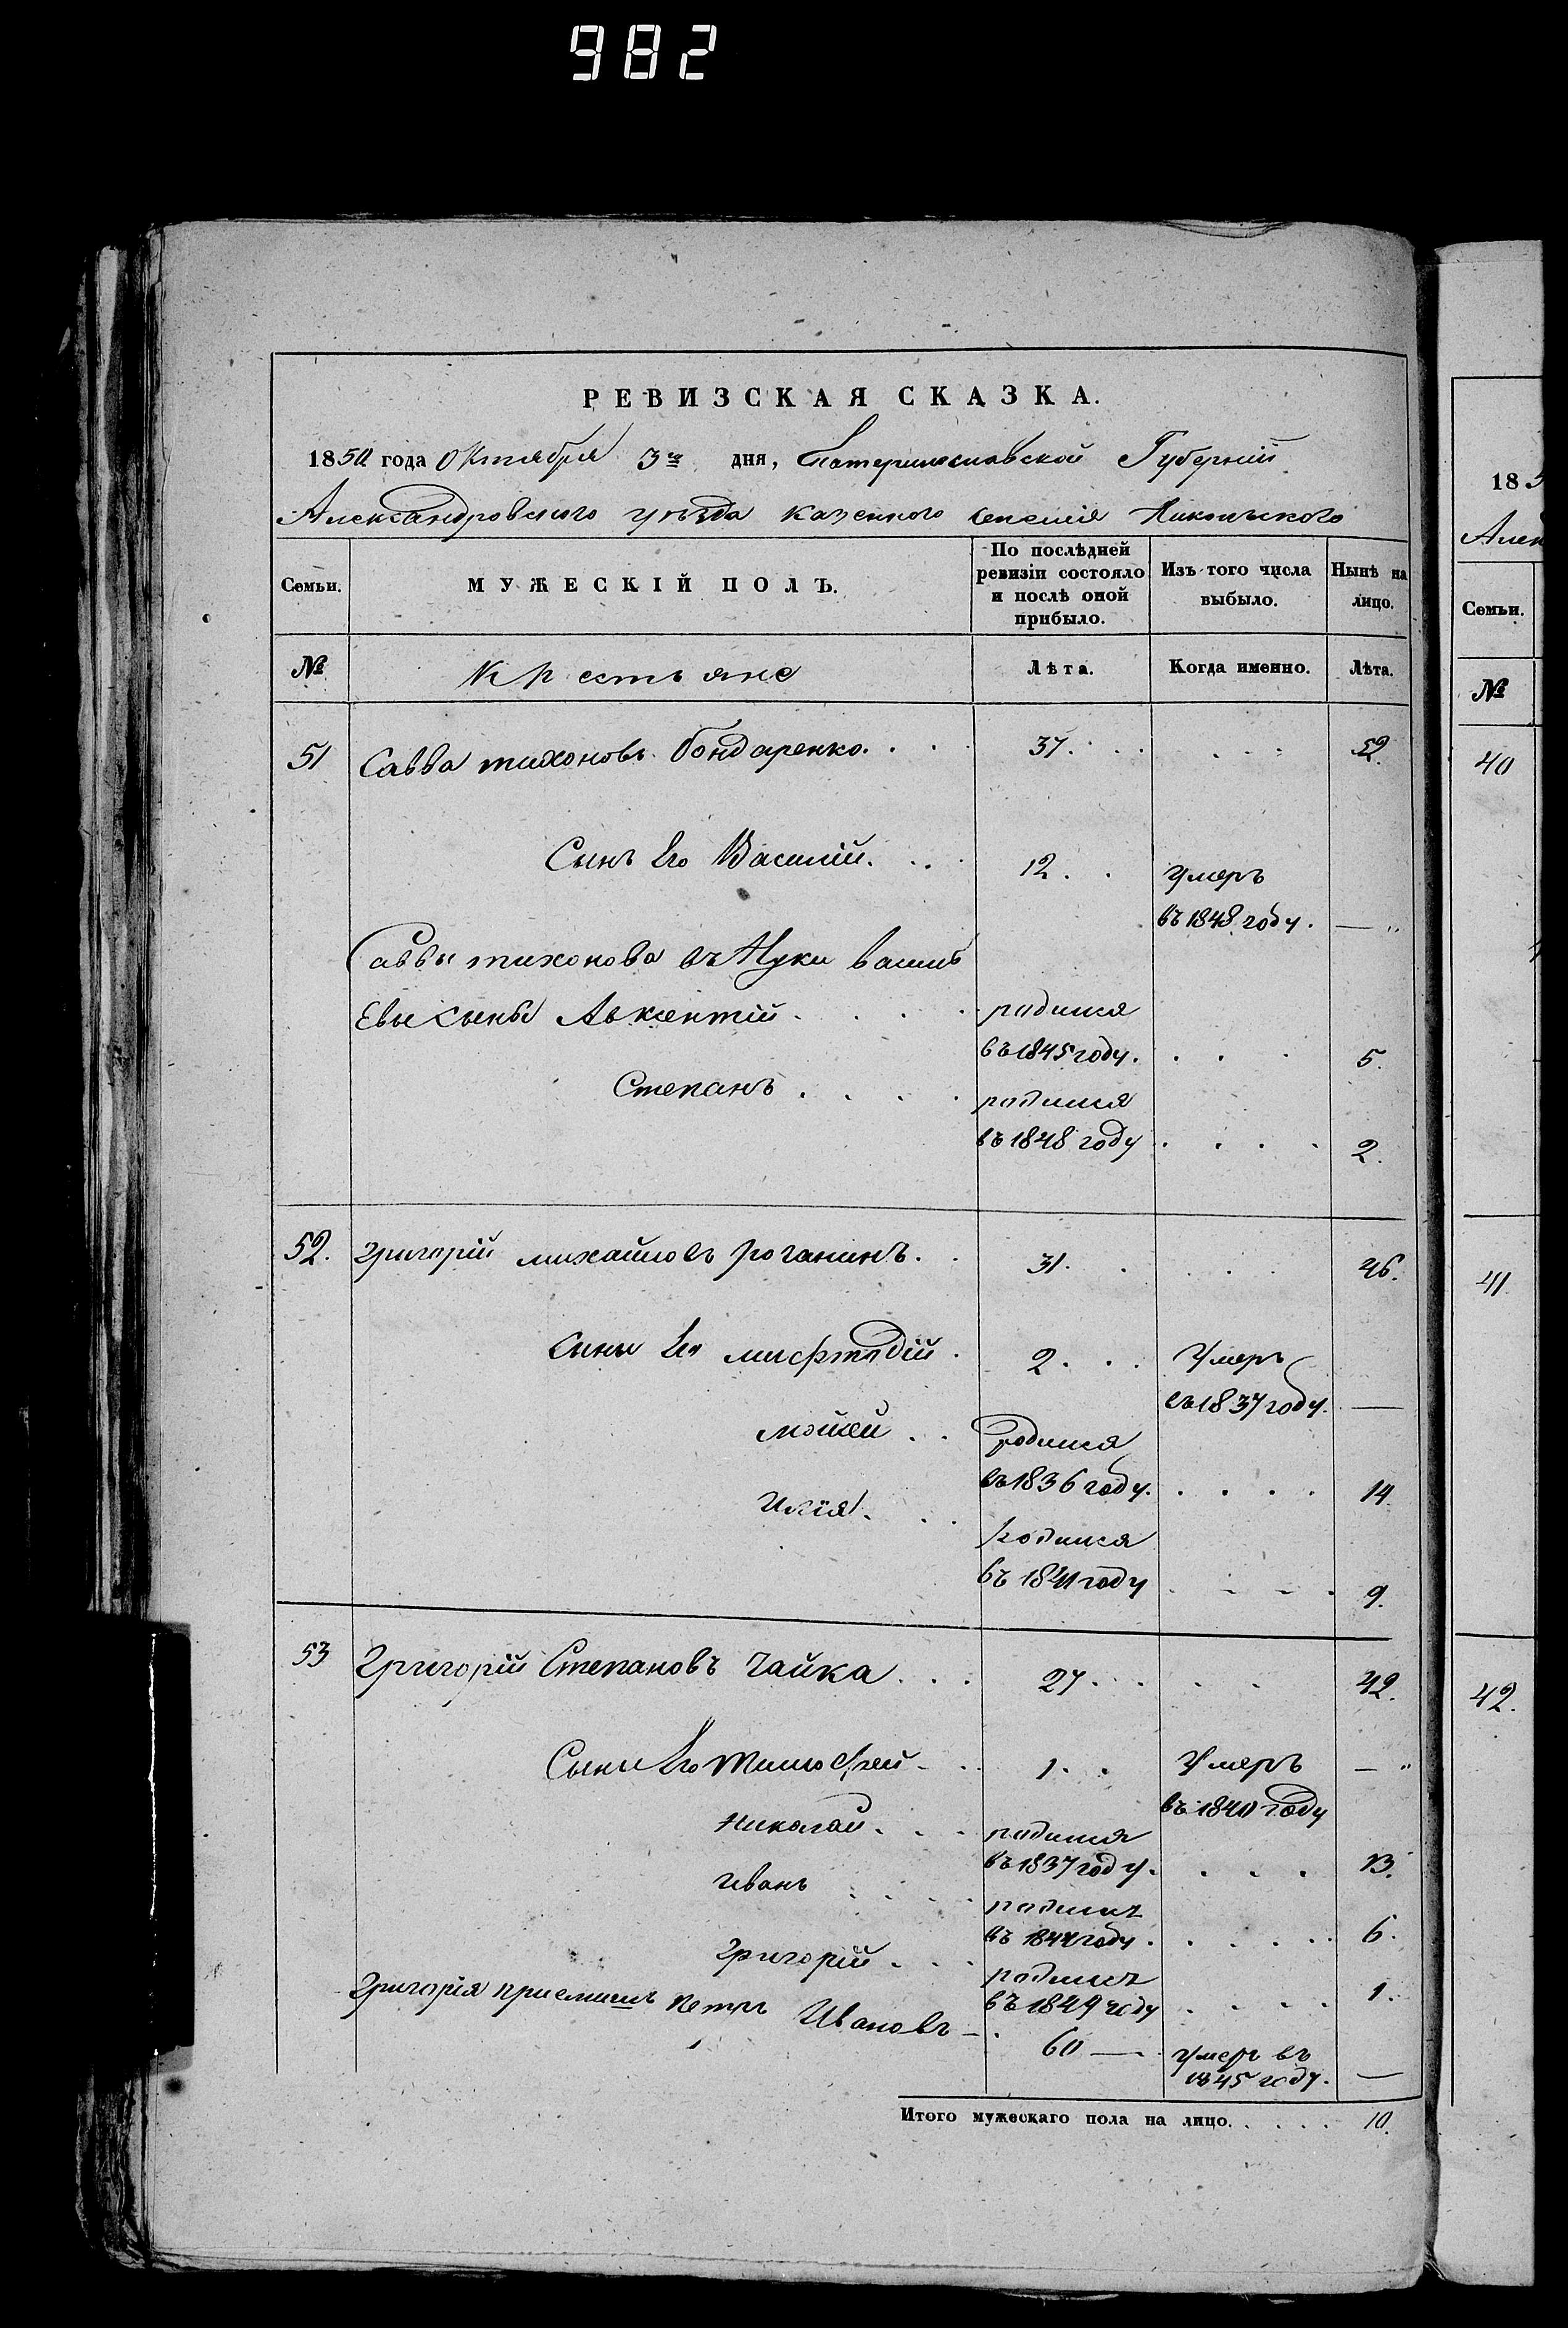 982
РЕВИЗСКАЯ СКАЗКА.
1850 года Октября 3го дня, Екатеринославской Губерніи
Александровского уѣзда казенного селенія Никольского
Семьи. МУЖЕСКІЙ ПОЛЪ. По послѣдней ревизіи состояло и послѣ оной прибыло. Изъ того числа выбыло. Нынѣ на лицо.
№ Крестьяне Лѣта. Когда именно. Лѣта.
51 Савва тихоновъ бондаренко. 37. 52.
Сынъ Его Василій. 12. умеръ
въ 1848 году. — „
Саввы тихонова внуки васил
Евы сыны Авксентій родился
въ 1845 году. 5.
Степанъ родился
въ 1848 году 2.
52. григорій михайловъ роганинъ. 31. 46.
сыны Его мефтодій. 2. Умеръ
въ 1837 году. —
мойсей родился
въ 1836 году. 14.
илія. родился
въ 1841 году 9.
53 григорій Степановъ Чайка 27. 42.
Сыны Его тимофей 1. Умеръ — „
въ 1840 году
николай. родился
въ 1837 году. 13.
иванъ родился
въ 1844 году. 6.
григорій. родился
въ 1849 году 1.
григорія приемышъ петръ Ивановъ — 60 — умеръ въ
1845 году. —
Итого мужескаго пола на лицо. 10.
185
Алек
Семьи.
№
40
41
42.